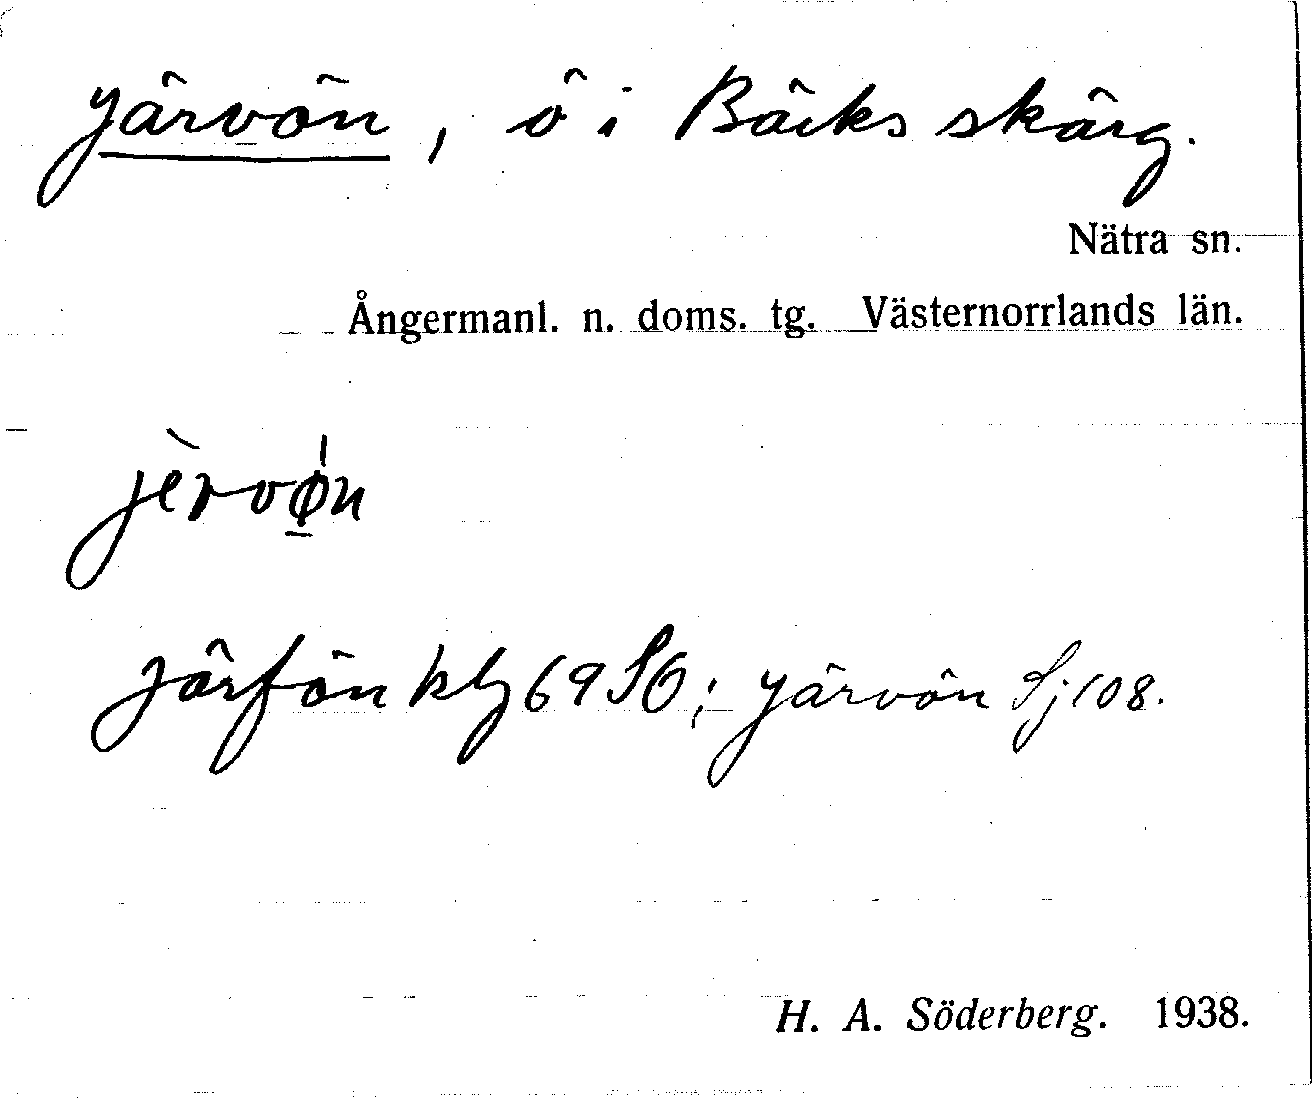 Järvön, ö i Bäcks skärg.
Nätra sn.
Ångermanl. n. doms. tg. Västernorrlands län.
jèrvø̲̍n
Järfön kbl 69 SO; Järvön Sj 108.
H. A. Söderberg. 1938.